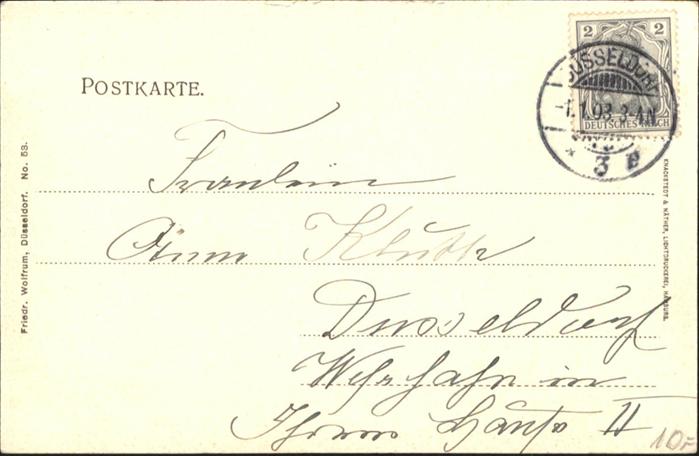 POSTKARTE.
2 2
DÜSSELDORF
-1.1.03.3-4N
DEUTSCHES REICH
* 3 e
Fräulein
Anna Kluth
Düsseldorf
Wehrhahn in
Ihrem Hause II
10,-
Friedr. Wolfrum, Düsseldorf. No. 53.
KNACKSTEDT & NÄTHER, LICHTDRUCKEREI, HAMBURG.